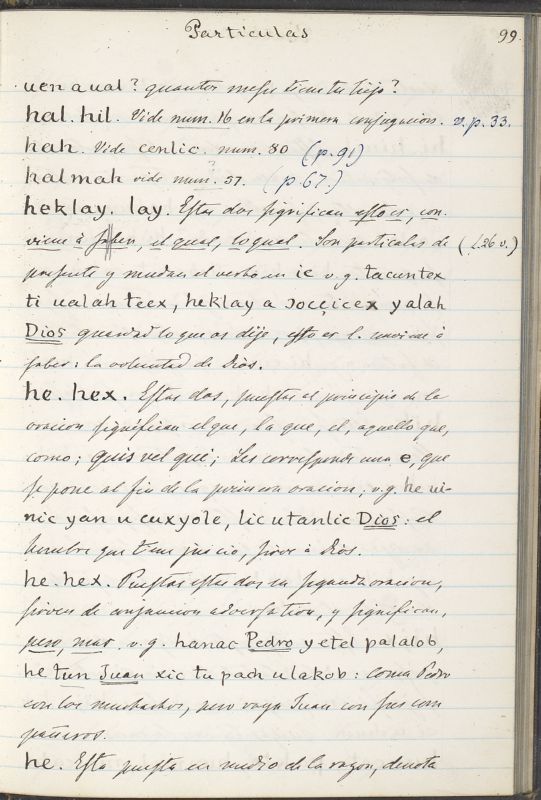 Particulas 99.
uen a ual? quantos meses tiene tu hijo?
hal. hil. Vide num. 16 en la primera conjugacion. v. p. 33.
hah. Vide cenlic. num. 80 (p. 91)
halmah vide num. 37. (p. 67.)
heklay. lay. Estas dos significan esto es, con-
viene à saber, el qual, lo qual. Son particulas de (126 v.)
presente y mudan el verbo en ic v. g. tacuntex
ti ualah teex, heklay a ɔocçicex yalah
Dios guardad lo que os dije, esto es l. conviene à
saber: la voluntad de Dios.
he. hex. Estas dos, puestas al principio de la
oracion significan el que, la que, el, aquello que,
como; quis vel qui; Les corresponde una e, que
se pone al fin de la primera oracion; v. g. he ui-
nic yan u cuxyole, lic utanlic Dios: el
hombre que tiene juicio, sirve à Dios.
he. hex. Puestas estas dos en segunda oracion,
sirven de conjuncion adversativa, y significan,
pero, mas. v. g. hanac Pedro yetel palalob,
he tun Juan xic tu pach u lakob: coma Pedro
con los muchachos, pero vaya Juan con sus com
pañeros.
he. Esta puesta en medio de la razon, denota